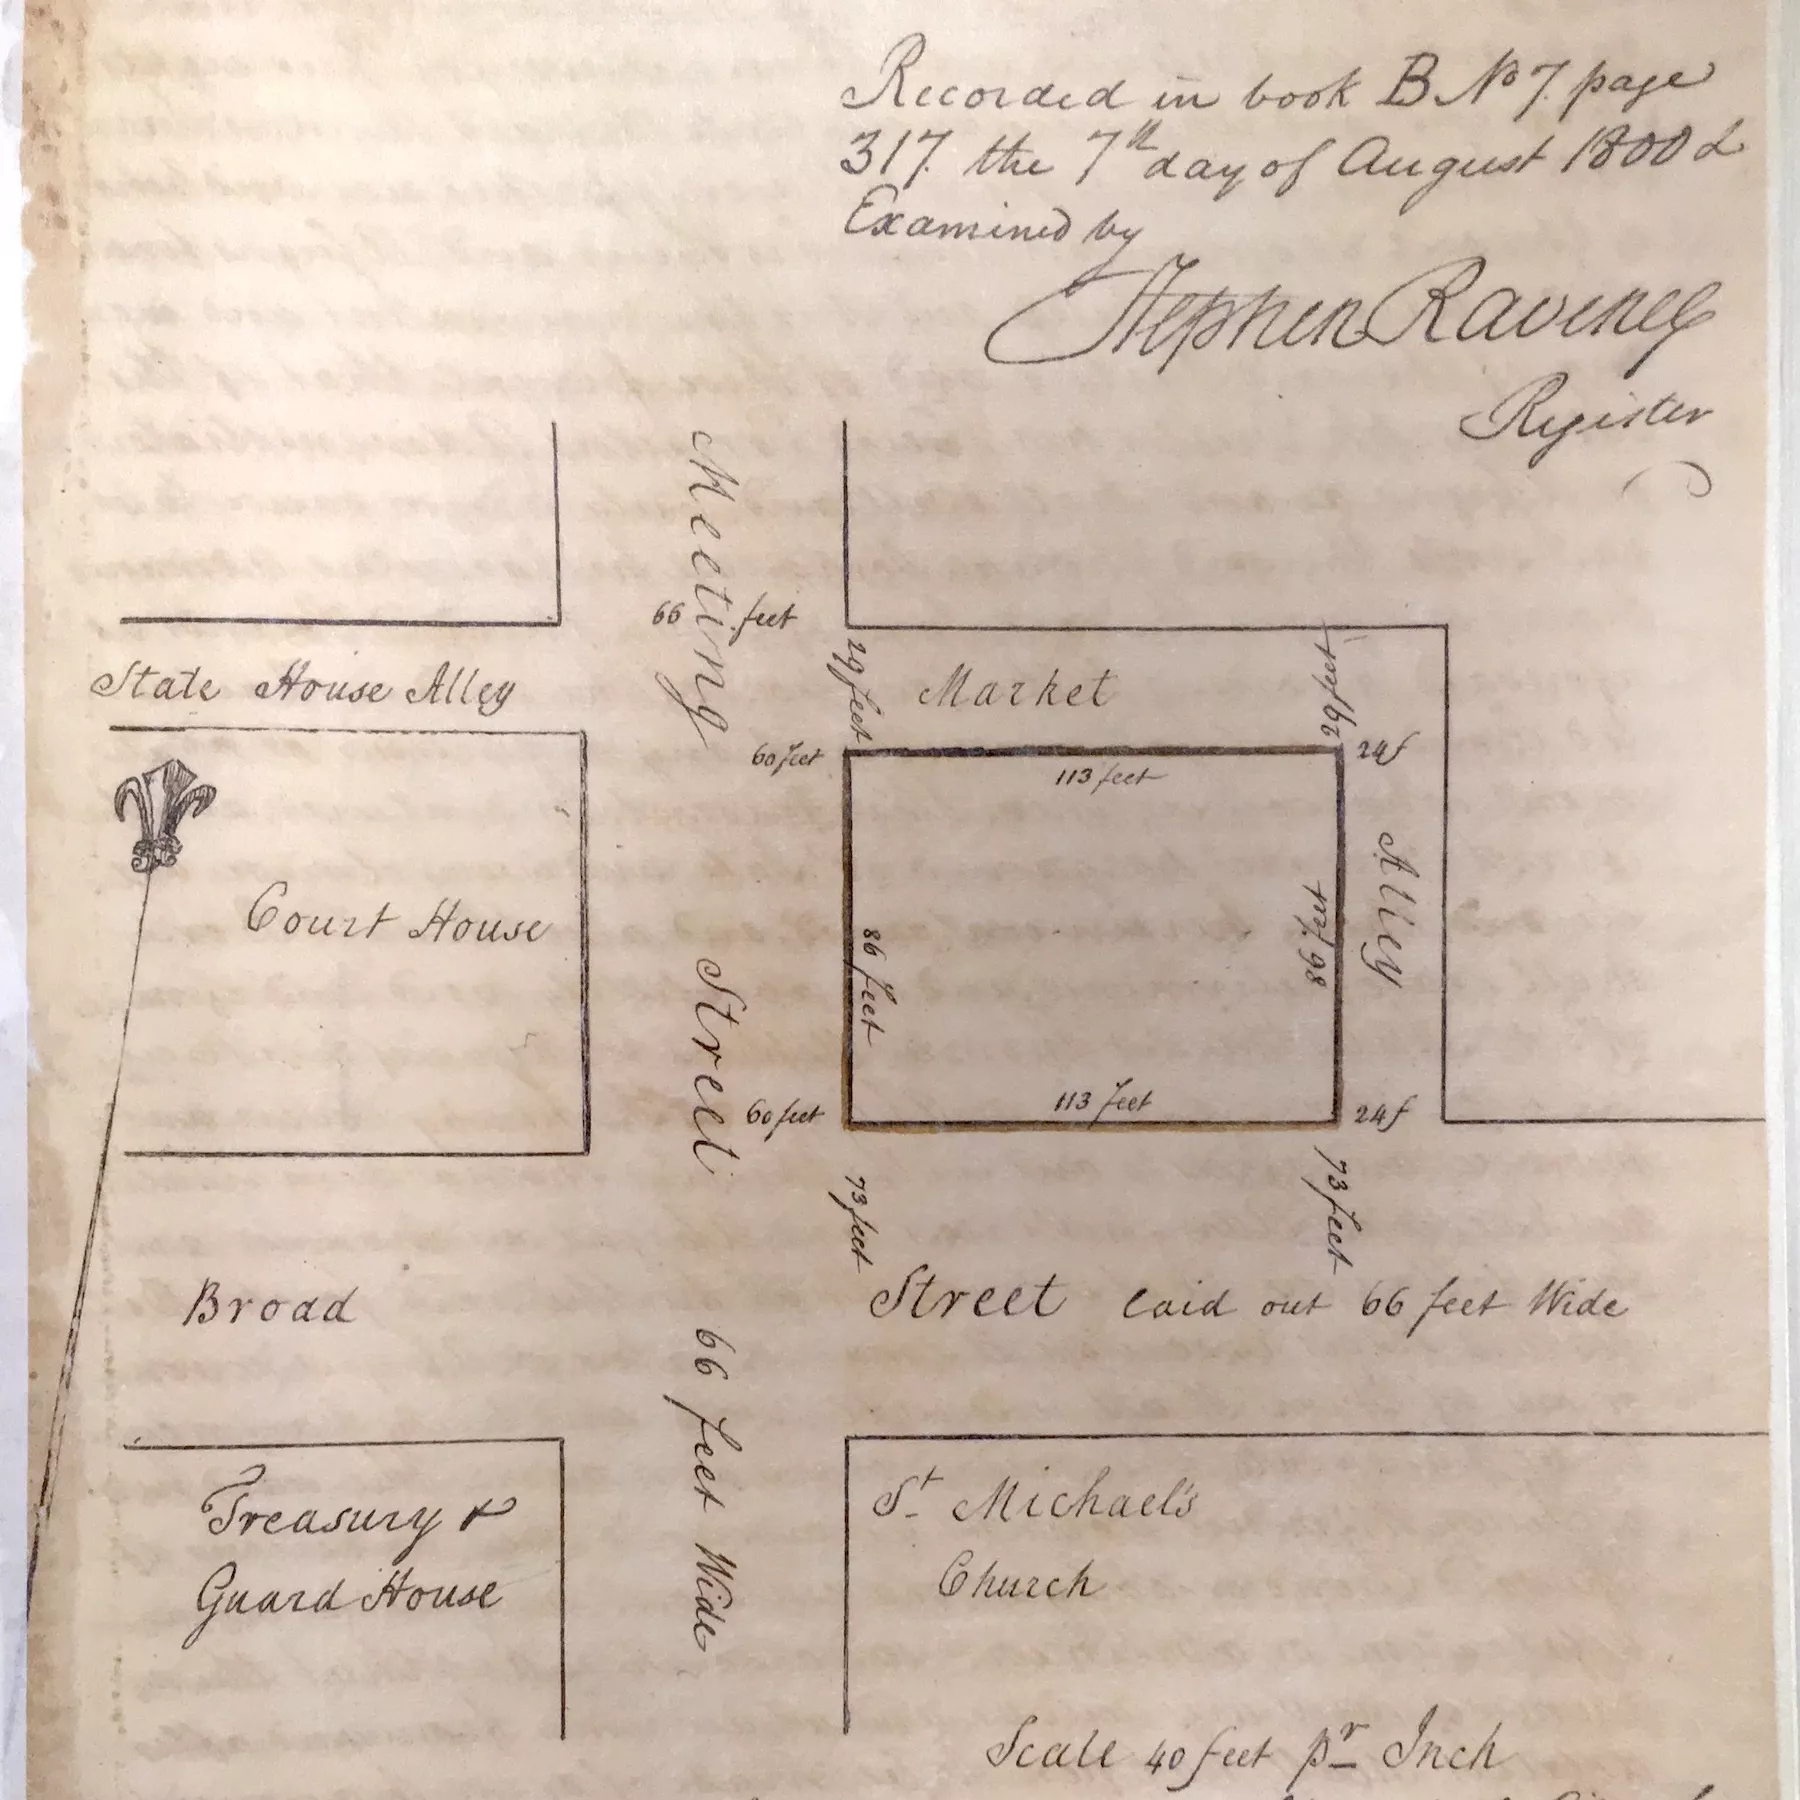 Recorded in book B No 7. page
317. the 7th day of August 1800 &
Examined by
Stephen Ravenel
Register
Meeting
66 feet
State House Alley
29 feet
Market
29 feet
60 feet
113 feet
24f
Court House
86 feet
86 feet
Alley
Street
60 feet
113 feet
24f
73 feet
73 feet
Broad
Street laid out 66 feet Wide
66 feet Wide
Treasury &
Guard House
St Michael's
Church
Scale 40 feet pr Inch